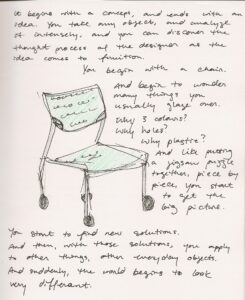 it begins with a concept, and ends with an
idea. You take any object, and analyze
it intensely, and you can discover the
thought process of the designer as the
idea comes to fruition.
You begin with a chair.
And begin to wonder
many things you
usually glaze over.
Why 3 colours?
Why holes?
Why plastic?
And like putting
a jigsaw puzzle
together, piece by
piece, you start
to get the
big picture.
You start to find new solutions.
And then, with those solutions, you apply
to other things, other everyday objects.
And suddenly, the world begins to look
very different.